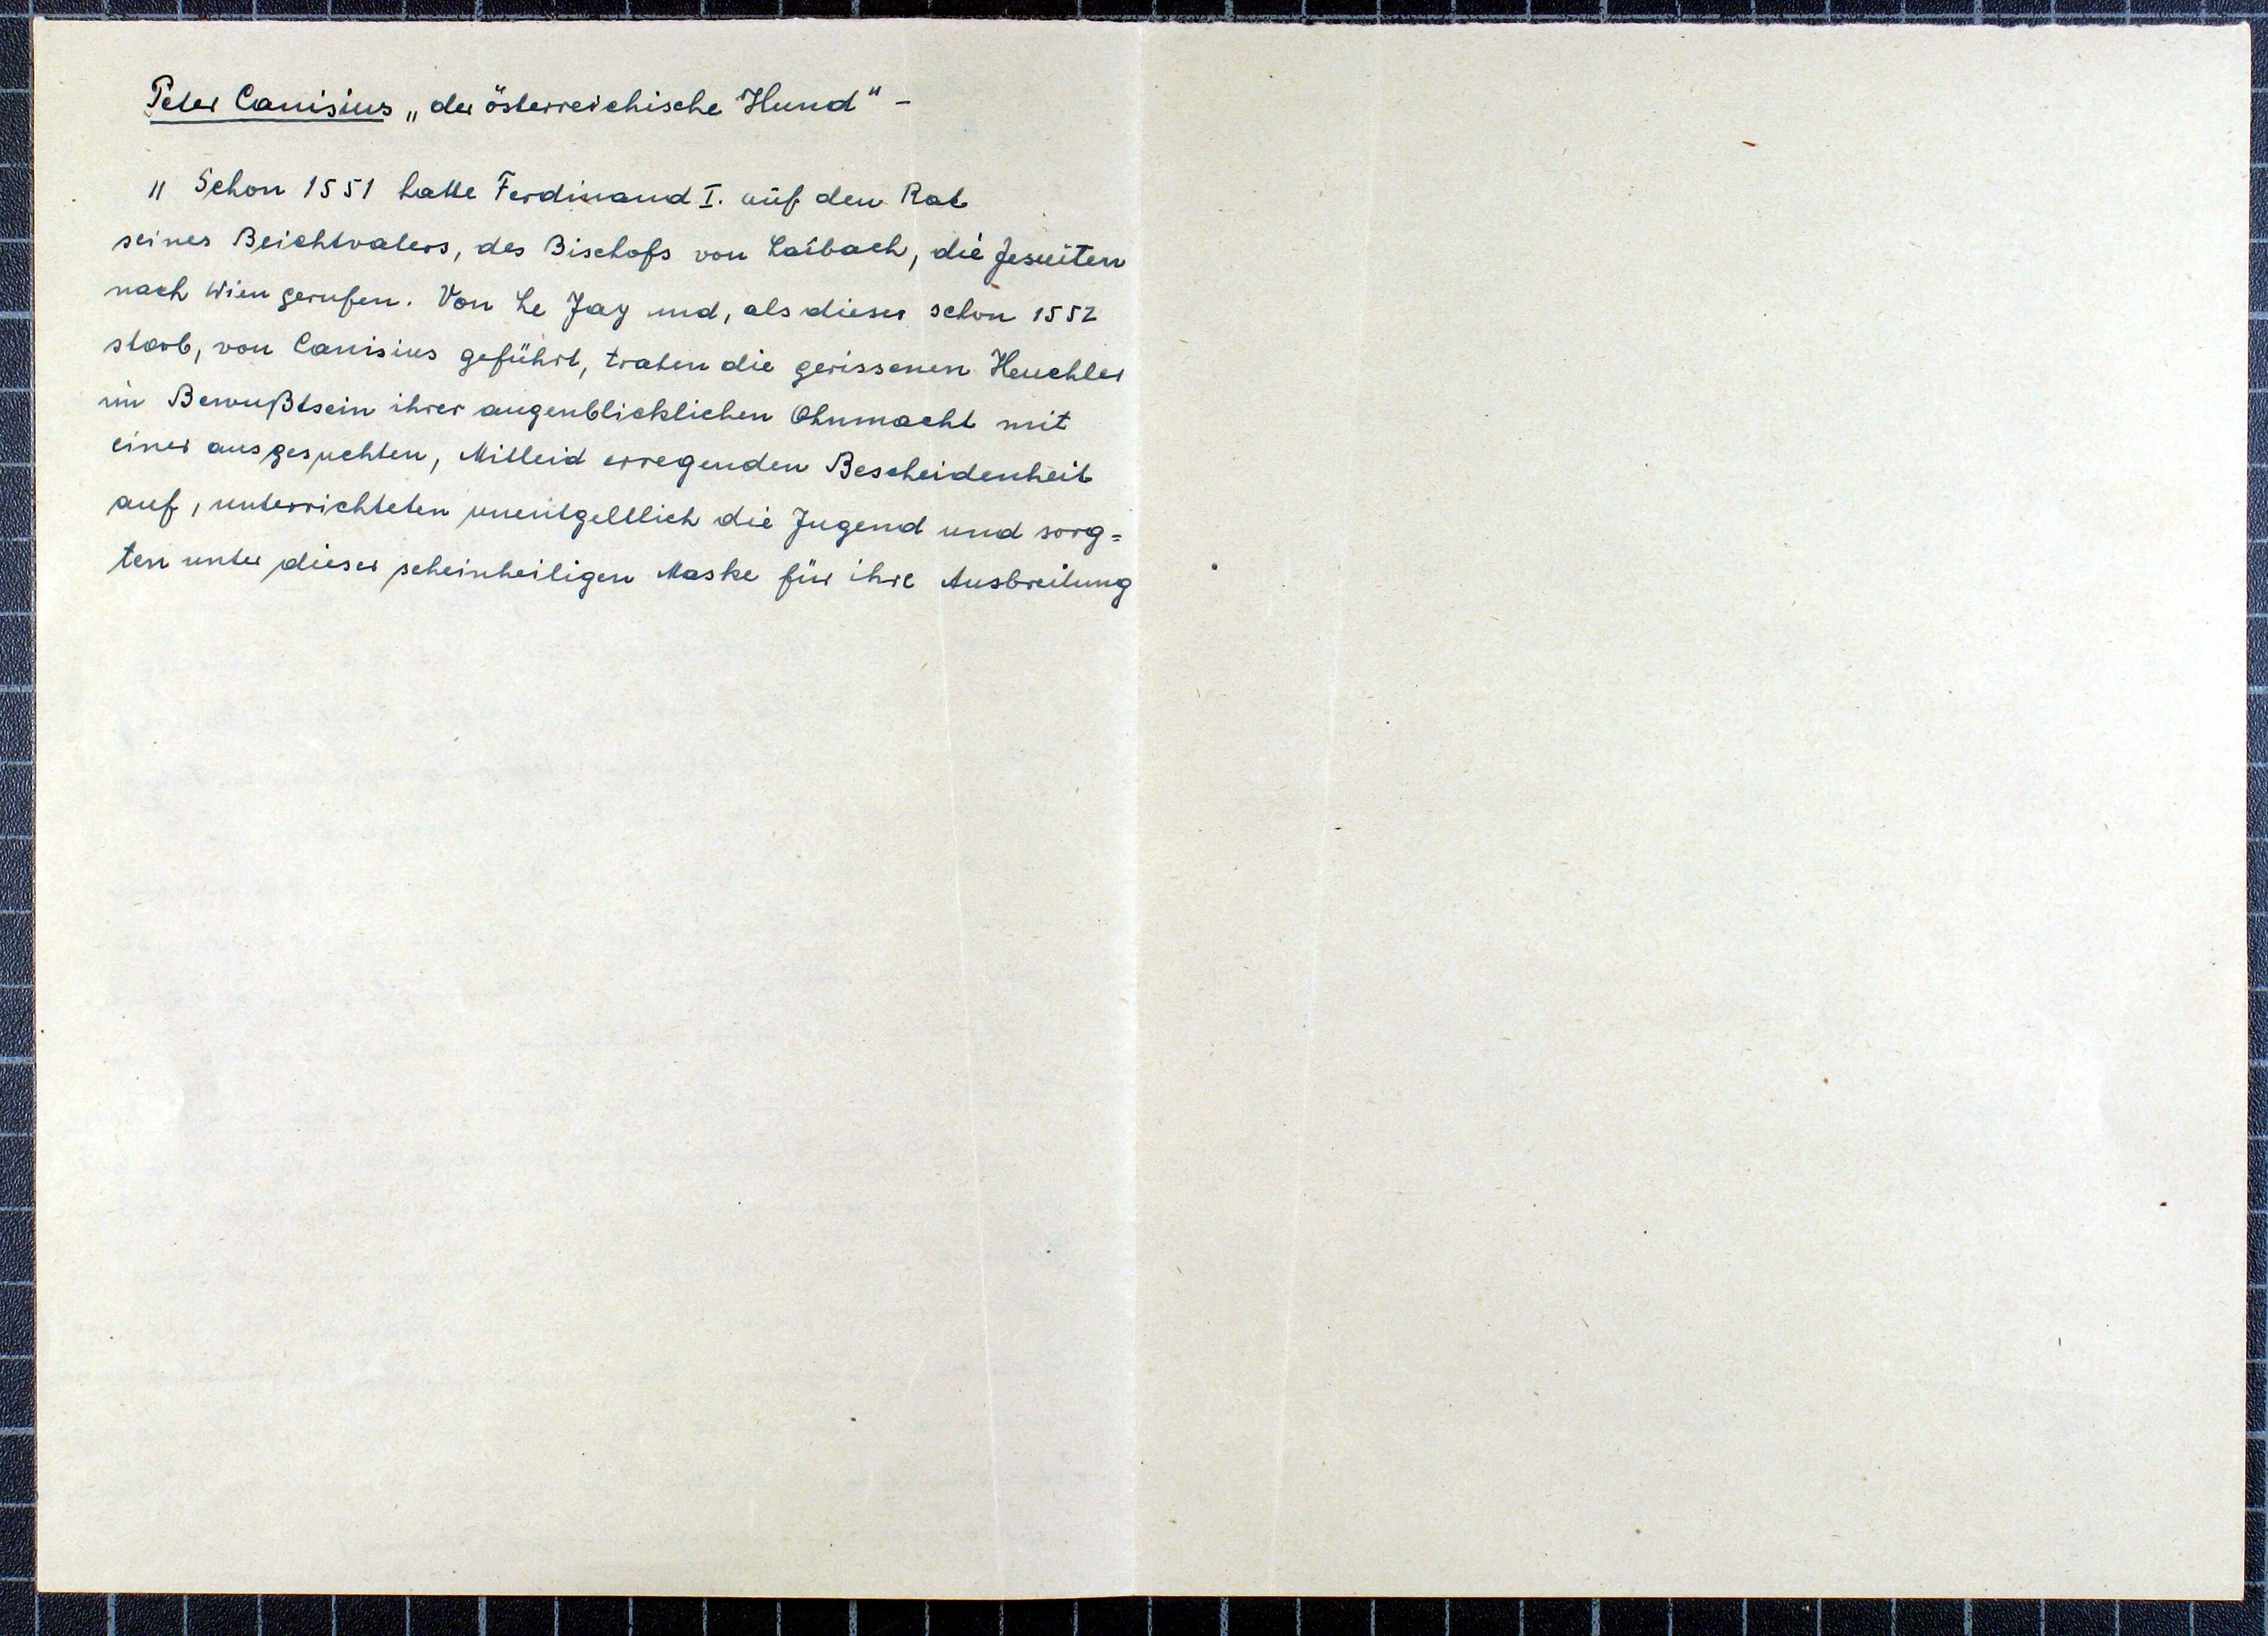 Peter Canisius „der österreichische Hund" -
„ Schon 1551 hatte Ferdinand I. auf den Rat
seines Beichtvaters, des Bischofs von Laibach, die Jesuiten
nach Wien gerufen. Von Le Jay und, als dieser schon 1552
starb, von Canisius geführt, traten die gerissenen Heuchler
im Bewußtsein ihrer augenblicklichen Ohnmacht mit
einer ausgesuchten, Mitleid erregenden Bescheidenheit
auf, unterrichteten unentgeltlich die Jugend und sorg=
ten unter dieser scheinheiligen Maske für ihre Ausbreitung